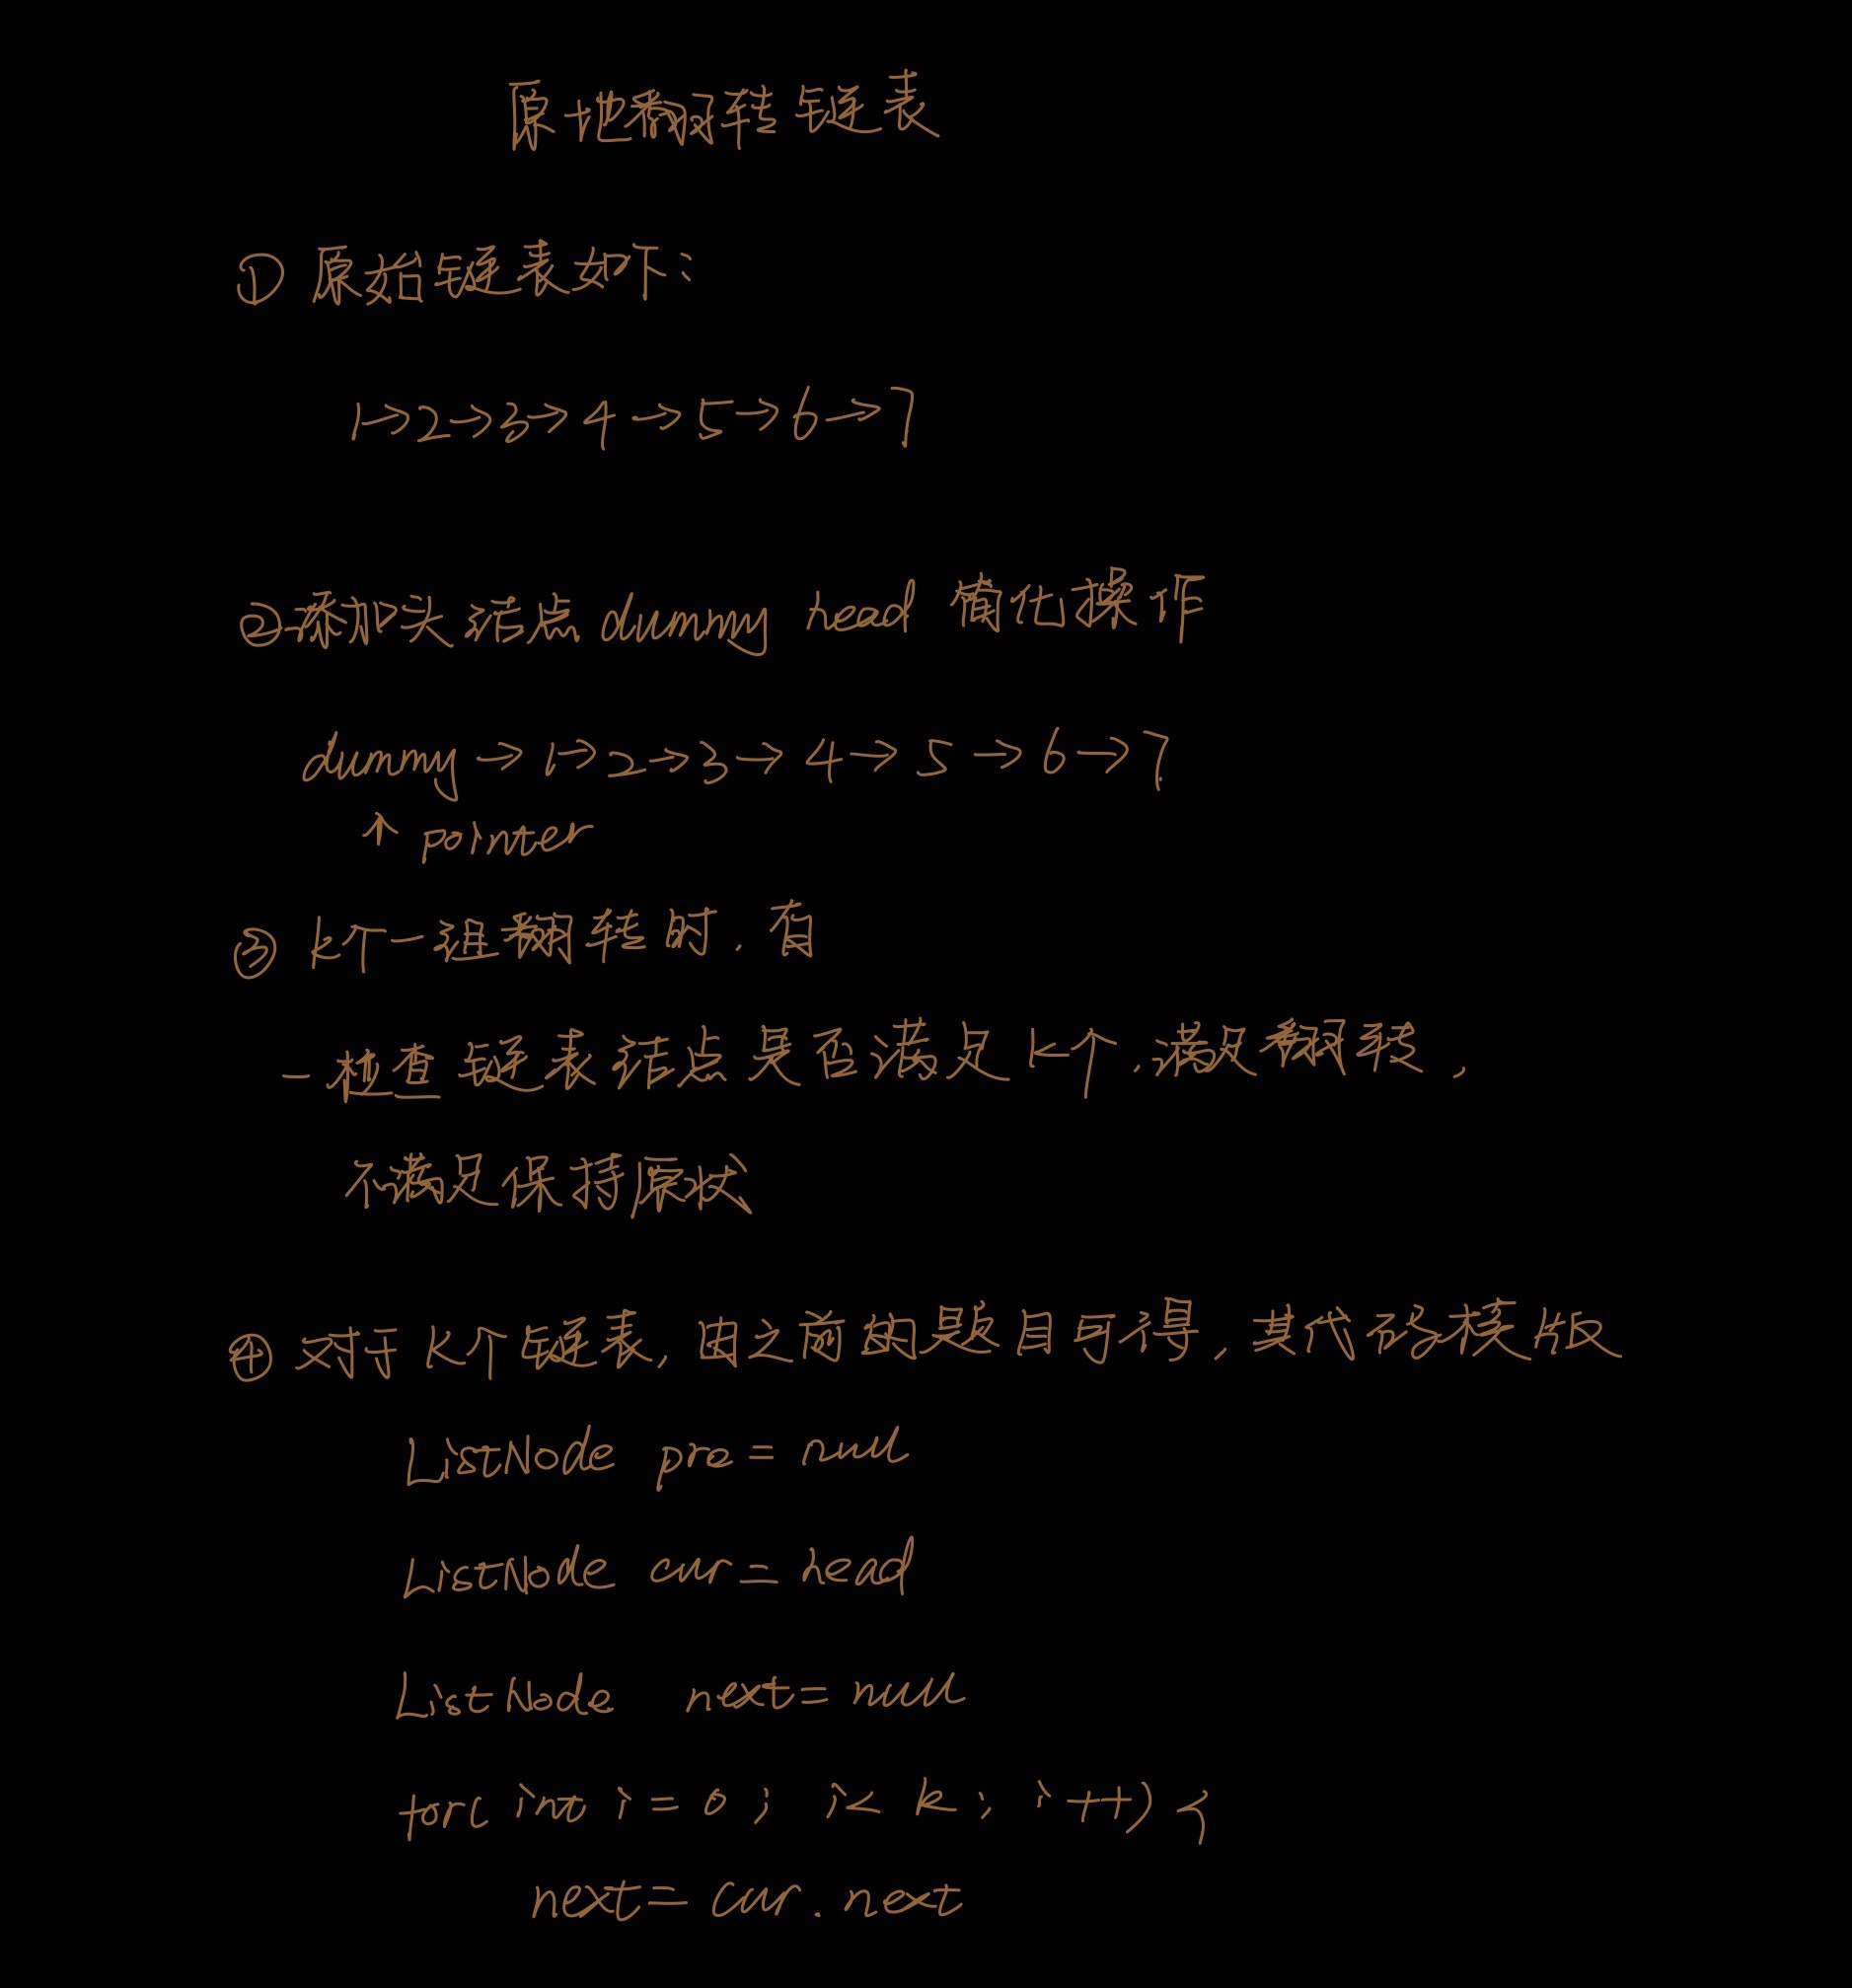 原地翻转链表
① 原始链表如下:
1→2→3→4→5→6→7
②添加头结点 dummy head 简化操作
dummy→1→2→3→4→5→6→7
↑ pointer
③ k个一组翻转时, 有
- 检查链表结点是否满足k个, 满足翻转,
不满足保持原状
④ 对于k个链表, 由之前的题目可得, 其代码模版
ListNode pre = null
ListNode cur = head
ListNode next = null
for( int i = 0 ; i < k ; i ++) {
next = cur. next